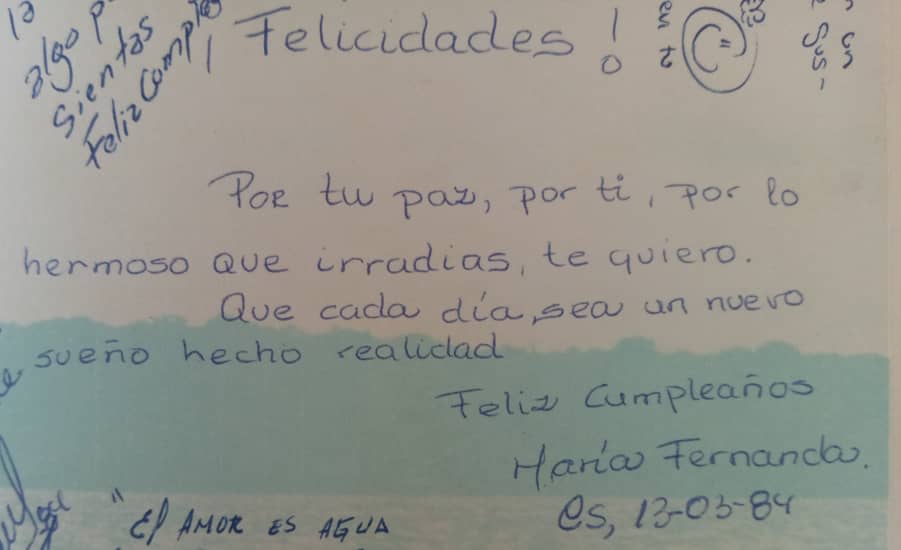 algo
sientas
Feliz Cumple
¡Felicidades!
Por tu paz, por ti, por lo
hermoso que irradias, te quiero.
Que cada día, sea un nuevo
sueño hecho realidad
Feliz Cumpleaños
María Fernanda.
Cs, 13-03-84
"El AMOR ES AGUA